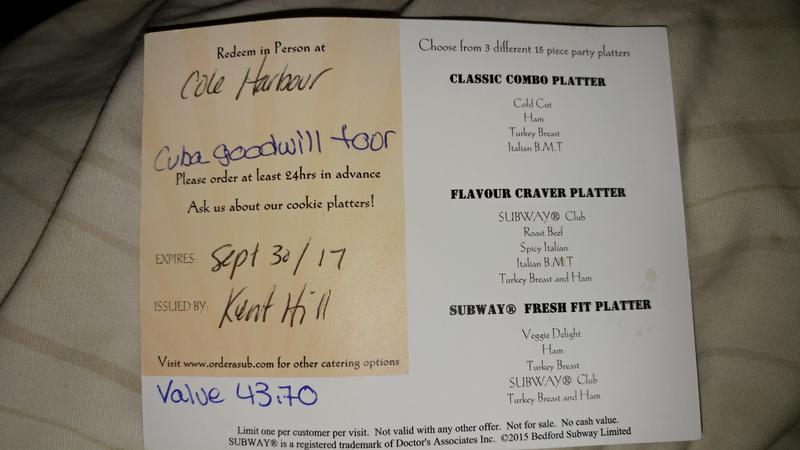 Redeem in Person at
Cole Harbour
Cuba goodwill tour
Please order at least 24hrs in advance
Ask us about our cookie platters!
EXPIRES: Sept 30/17
ISSUED BY: Kent Hill
Visit www.orderasub.com for other catering options
Value 43.70
Choose from 3 different 15 piece party platters
CLASSIC COMBO PLATTER
Cold Cut
Ham
Turkey Breast
Italian B.M.T
FLAVOUR CRAVER PLATTER
SUBWAY® Club
Roast Beef
Spicy Italian
Italian B.M.T
Turkey Breast and Ham
SUBWAY® FRESH FIT PLATTER
Veggie Delight
Ham
Turkey Breast
SUBWAY® Club
Turkey Breast and Ham
Limit one per customer per visit. Not valid with any other offer. Not for sale. No cash value.
SUBWAY® is a registered trademark of Doctor's Associates Inc. ©2015 Bedford Subway Limited